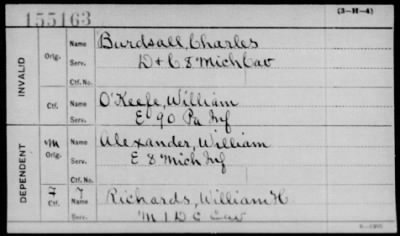 155163
(3-H-4)
INVALID
Orig.
Name Burdsall, Charles
Serv. D + C 8 Mich Cav
Ctf. No.
Ctf.
Name O'Keefe, William
Serv. E 90 Pa Inf
DEPENDENT
m
Orig.
Name Alexander, William
Serv. E 8 Mich Inf
Ctf. No.
Ctf.
Name Richards, William H.
Serv. M 1 D C Cav